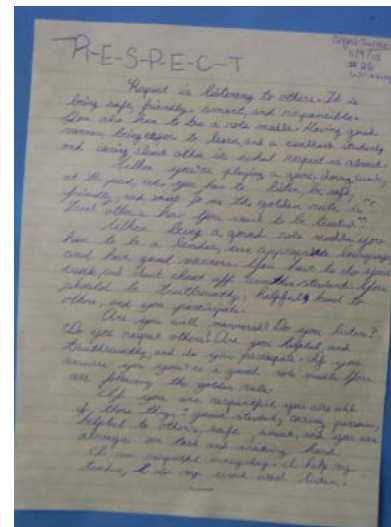 R-E-S-P-E-C-T
11/9/15
# 26
Respect is listening to others. It is
being safe, friendly, smart, and responsible.
You also have to be a role model. Having good
manners, being eager to learn, and a excellent student
and caring about other is what respect is about.
When you're playing a game, doing work,
at the you have to listen, be safe,
friendly, and smart. To me the golden rule is "
Treat others how you want to be treated."
When being a good role model, you
have to be a leader, use appropriate language,
and have good manners. You have to do your
work, and don't cheat off another student. You
should be trustworthy, helpful, kind to
others, and you participate.
Are you well mannered? Do you listen?
Do you respect others? Are you helpful, and
trustworthy, and do you participate. If you
answer you yes is a good role model. You
are following the golden rule.
If you are respectful you are all
of these things: good student, caring person,
helpful to others, safe, smart, and you are
always on task and working hard.
I am respectful everyday. I help my
teacher, I do my work and listen.